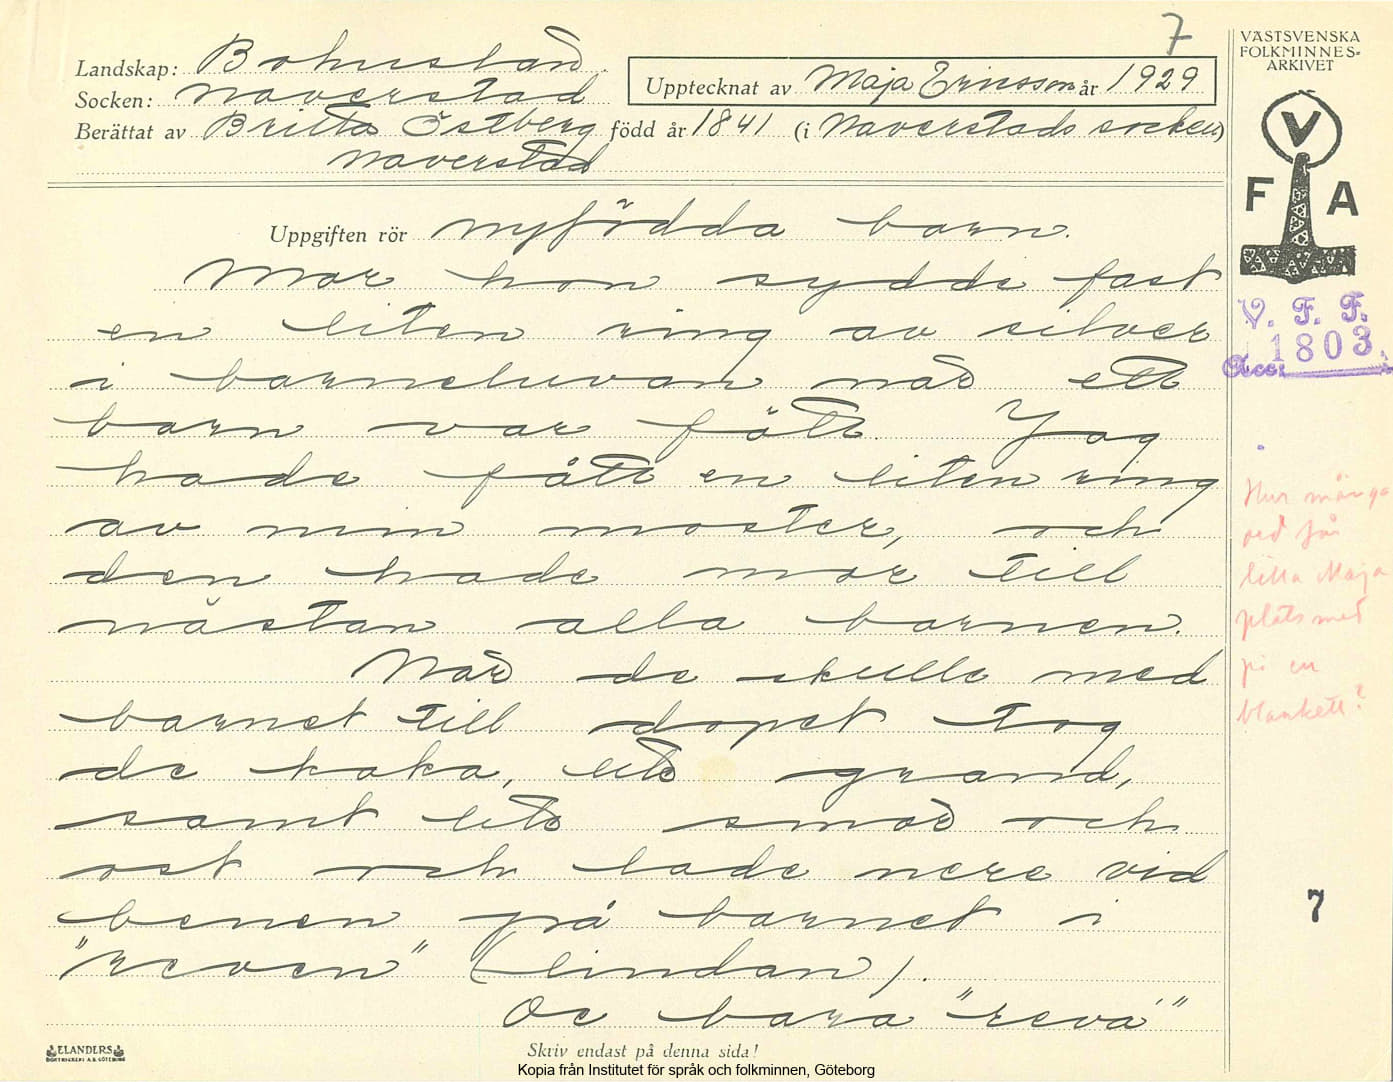 7
VÄSTSVENSKA
FOLKMINNES-
ARKIVET
Landskap: Bohuslän.
Socken: Naverstad
Upptecknat av Maja Ericsson år 1929
Berättat av Britta Östberg född år 1841 (i Naverstads socken)
Naverstad
V
F A
Uppgiften rör nyfödda barn.
Mor hon sydde fast
en liten ring av silver
i barneluvan när ett
barn var fött. Jag
hade fått en liten ring
av min moster, och
den hade mor till
nästan alla barnen.
När de skulle med
barnet till dopet tog
de kaka, lite grand,
samt lite smör och
ost och lade nere vid
benen på barnet i
"reven" (lindan).
De bara "reva"
V. F. F.
Acc. 1803
Hur många
ord får
lilla Maja
plats med
på en
blankett?
7
ELANDERS
BOKTRYCKERI A.B. GÖTEBORG
Skriv endast på denna sida!
Kopia från Institutet för språk och folkminnen, Göteborg